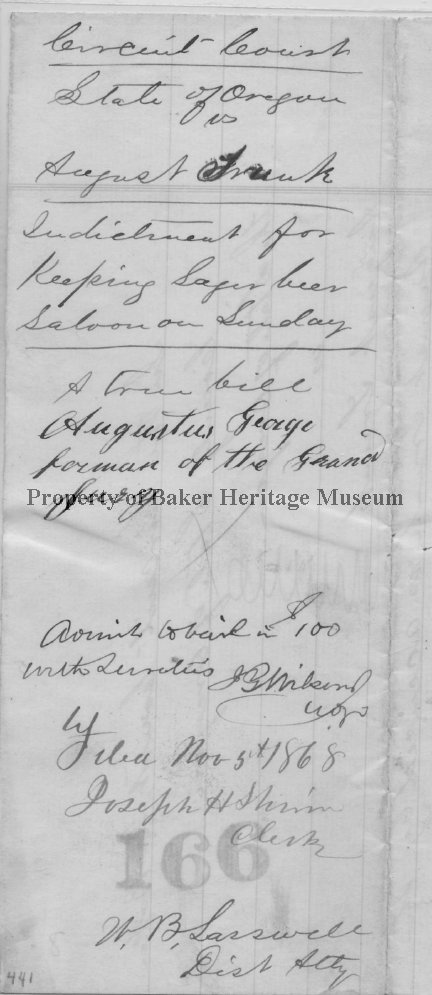 Circuit Court
State of Oregon
vs
August Trunk
Indictment for
Keeping Lager beer
Saloon on Sunday
A true bill
Augustus Geage
forman of the Grand
Jury
Property of Baker Heritage Museum
Admit to bail in $100
with Sureties J G Wilson
Filed Nov 5th 1868
Joseph H Shinn
Clerk
166
W. B. Lasswell
Dist Atty
441